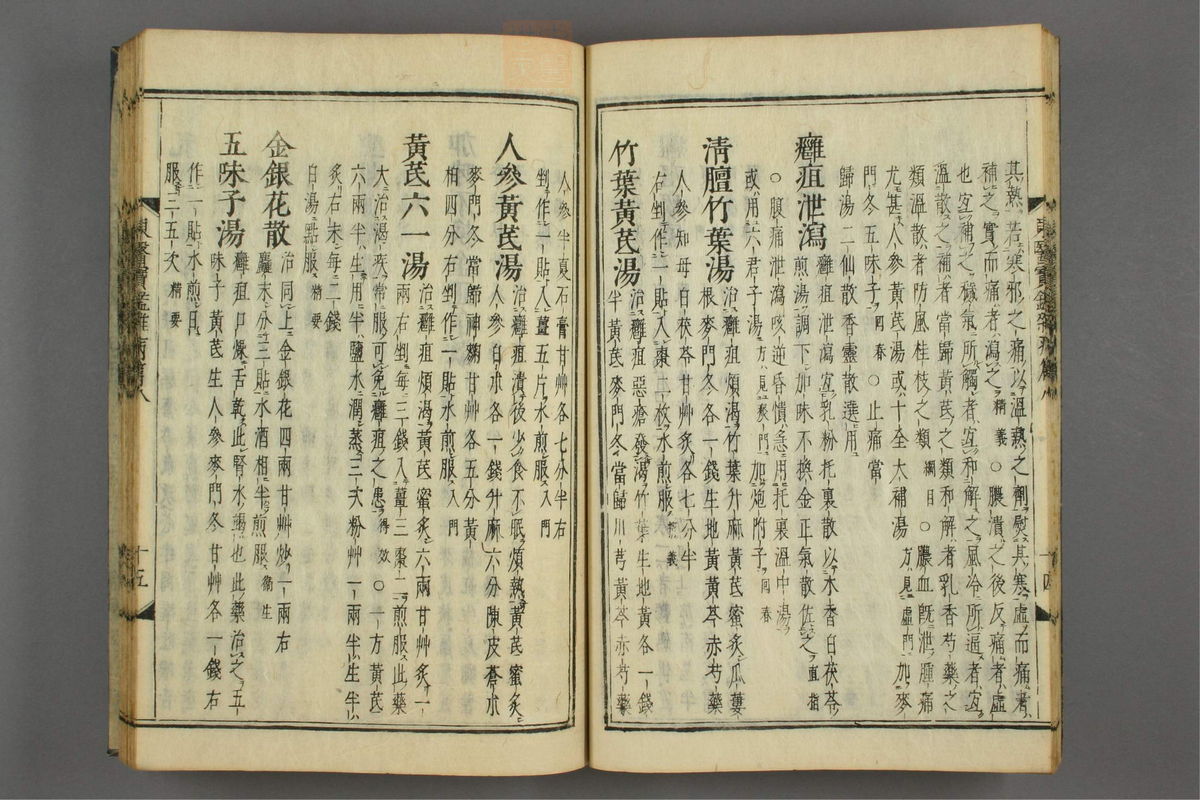 其熱若寒邪之痛以溫熱之劑熨其寒虛而痛者
補之實而痛者瀉之精義○膿潰之後反痛者虛
也宜補之穢氣所觸者宜和解之風冷所逼者宜
溫散之補者當歸黃芪之類和解者乳香芍藥之
類溫散者防風桂枝之類綱目○膿血旣泄腫痛
尤甚人參黃芪湯或十全大補湯方見虛門加麥
門冬五味子回春○止痛當
歸湯二仙散香靈散選用
癰疽泄瀉癰疽泄瀉宜乳粉托裏散以木香白茯苓
煎湯調下加味不換金正氣散佐之直指
○腹痛泄瀉咳逆昏憒急用托裏溫中湯
或用六君子湯方見痰門加炮附子回春
淸膻竹葉湯治癰疽煩渴竹葉升麻黃芪蜜炙瓜蔞
根麥門冬各一錢生地黃黃芩赤芍藥
人參知母白茯苓甘艸炙各七分半
右剉作一貼入棗二枚水煎服精義
竹葉黃芪湯治癰疽惡瘡發渴竹葉生地黃各一錢
半黃芪麥門冬當歸川芎黃芩赤芍藥
人參半夏石膏甘艸各七分半右
剉作一貼入薑五片水煎服入門
人參黃芪湯治癰疽潰後少食不眠煩熱黃芪蜜炙
人參白朮各一錢升麻六分陳皮蒼朮
麥門冬當歸神麴甘艸各五分黃
栢四分右剉作一貼水煎服入門
黃芪六一湯治癰疽煩渴黃芪蜜炙六兩甘艸炙一
兩右剉每三錢入薑三棗二煎服此藥
大治渴疾常服可免癰疽之患得效○一方黃芪
六兩半生用半鹽水潤蒸三次粉艸一兩半生半
炙右末每二錢
白湯點服精要
金銀花散治同上金銀花四兩甘艸炒一兩右
麤末分三貼水酒相半煎服衛生
五味子湯癰疽口燥舌乾此腎水竭也此藥治之五
味子黃芪生人參麥門冬甘艸各一錢右
作一貼水煎日
服三五次精要